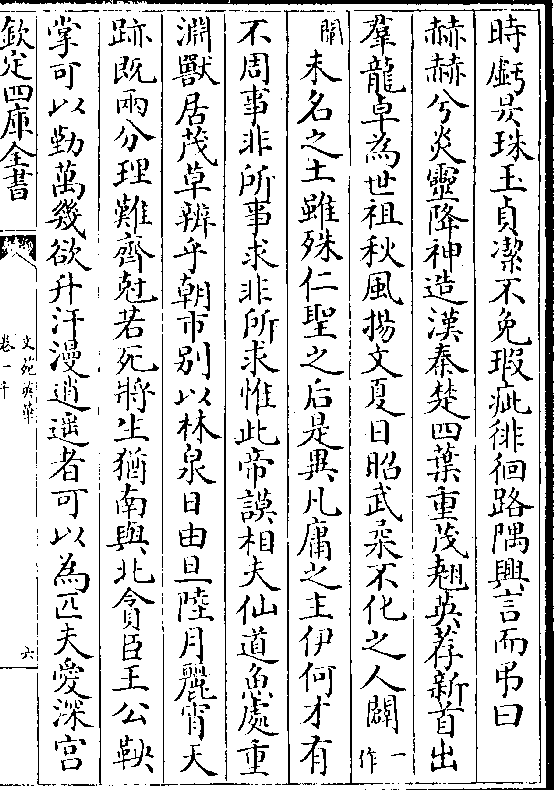 時虧㫁珠玉貞潔不免瑕疵徘徊路隅興言而弔曰
赫赫兮炎靈降神造漢秦楚四葉重茂翹英荐新首出
羣龍卓為世祖秋風揚文夏日昭武朶不化之人闢一作
闡未名之土雖殊仁聖之后是異凡庸之主伊何才有
不周事非所事求非所求惟此帝謨相夫仙道魚處重
淵獸居茂草辨乎朝市别以林泉日由旦陸月麗宵天
跡既兩分理難齊尅若死將生猶南與北貪臣王公鞅
掌可以勤萬幾欲升汗漫逍遥者可以為匹夫愛深宫
欽定四庫全書
文苑英華
卷一千
六